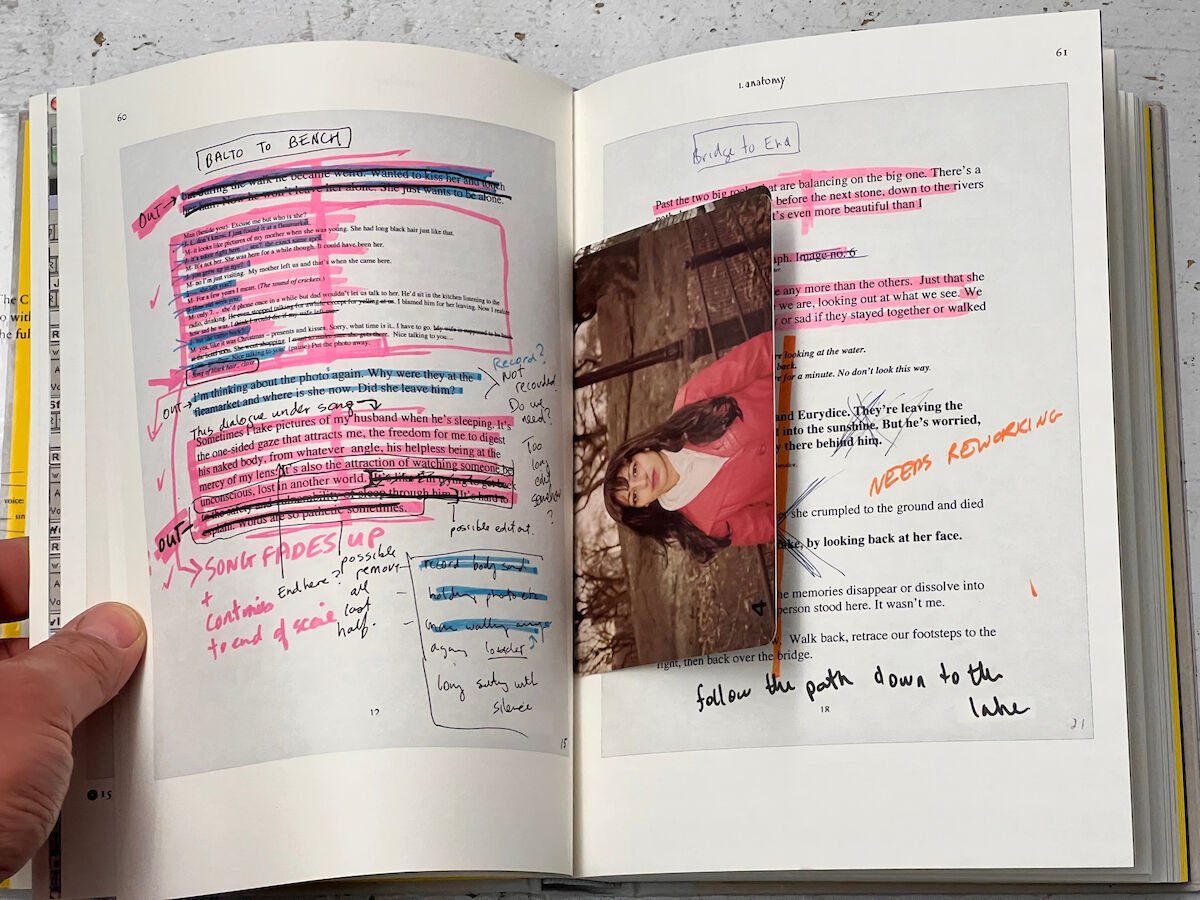 60
BALTO TO BENCH
OUT→
but during the walk he became weird. Wanted to kiss her and touch
her hair. Now he won't leave her alone. She just wants to be alone.
Man (beside you)- Excuse me but who is she?
J- I don't know, I just found it at a fleamarket.
M- it looks like pictures of my mother when she was young. She had long black hair just like that.
J- it's taken right here ... see? the exact same spot
M- It's not her. She was here for a while though. It could have been her.
J- you grew up in nyc?
M- no I'm just visiting. My mother left us and that's when she came here.
J- ... she left you?
M- For a few years I mean. (The sound of crickets.)
J- How old were you?
M- only 7... she'd phone once in a while but dad wouldn't let us talk to her. He'd sit in the kitchen listening to the
radio, drinking. He even stopped talking for awhile except for yelling at us. I blamed him for her leaving. Now I realize
how sad he was. I think I would die if my wife left
J- but she came back?
M- yea, like it was Christmas – presents and kisses. Sorry, what time is it.. I have to go. My wife is supposed to be back
in the hotel soon. She went shopping. I want to make sure she gets there. Nice talking to you...
Nice talking to you. (pause) Put the photo away.
Song of black hair..
OUT→
i'm thinking about the photo again. Why were they at the
fleamarket and where is she now. Did she leave him?
Record?
Not
recorded
Do we
need?
This dialogue under song
Sometimes I take pictures of my husband when he's sleeping. It's
the one-sided gaze that attracts me, the freedom for me to digest
his naked body, from whatever angle, his helpless being at the
mercy of my lens. It's also the attraction of watching someone be
unconscious, lost in another world. It's like I'm trying to get back
to the safety and vulnerability of sleep through him. It's hard to
explain. Words are so pathetic sometimes.
Too
long
?
OUT
possible edit out.
→SONG FADES UP
+
continues
to end of scene
End here?
possible
remove
all
last
half.
record body sound
holding photo etc
again louder
long sitting with
silence
12
15
15
1. anatomy
61
Bridge to End
Past the two big rocks that are balancing on the big one. There's a
before the next stone, down to the rivers
t's even more beautiful than I
aph. Image no. 6
e any more than the others. Just that she
we are, looking out at what we see. We
y or sad if they stayed together or walked
re looking at the water.
back.
re for a minute. No don't look this way.
and Eurydice. They're leaving the
t into the sunshine. But he's worried,
y there behind him.
NEEDS REWORKING
she crumpled to the ground and died
ake, by looking back at her face.
he memories disappear or dissolve into
person stood here. It wasn't me.
Walk back, retrace our footsteps to the
right, then back over the bridge.
follow the path down to the
lake
18
21
4